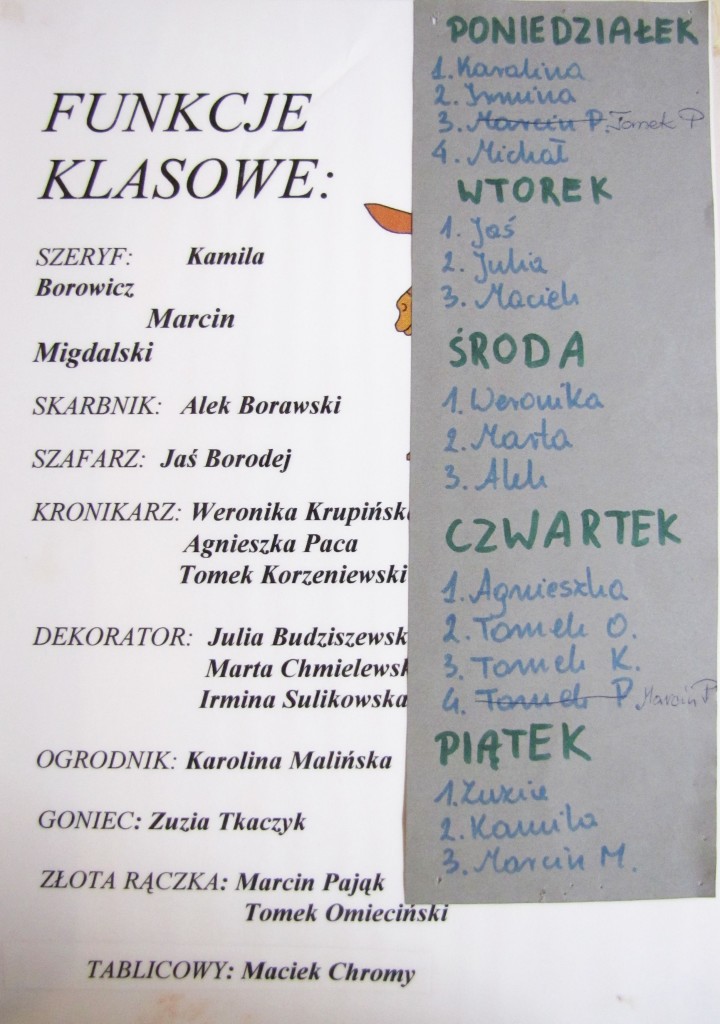 FUNKCJE
KLASOWE:
SZERYF: Kamila
Borowicz
Marcin
Migdalski
SKARBNIK: Alek Borawski
SZAFARZ: Jaś Borodej
KRONIKARZ: Weronika Krupińsk
Agnieszka Paca
Tomek Korzeniewski
DEKORATOR: Julia Budziszewsk
Marta Chmielewsk
Irmina Sulikowska
OGRODNIK: Karolina Malińska
GONIEC: Zuzia Tkaczyk
ZŁOTA RĄCZKA: Marcin Pająk
Tomek Omieciński
TABLICOWY: Maciek Chromy
PONIEDZIAŁEK
1. Karolina
2. Irmina
3. Marcin P. Tomek P
4. Michał
WTOREK
1. Jaś
2. Julia
3. Maciek
ŚRODA
1. Weronika
2. Marta
3. Alek
CZWARTEK
1. Agnieszka
2. Tomek O.
3. Tomek K.
4. Tomek P. Marcin P
PIĄTEK
1. Zuzia
2. Kamila
3. Marcin M.